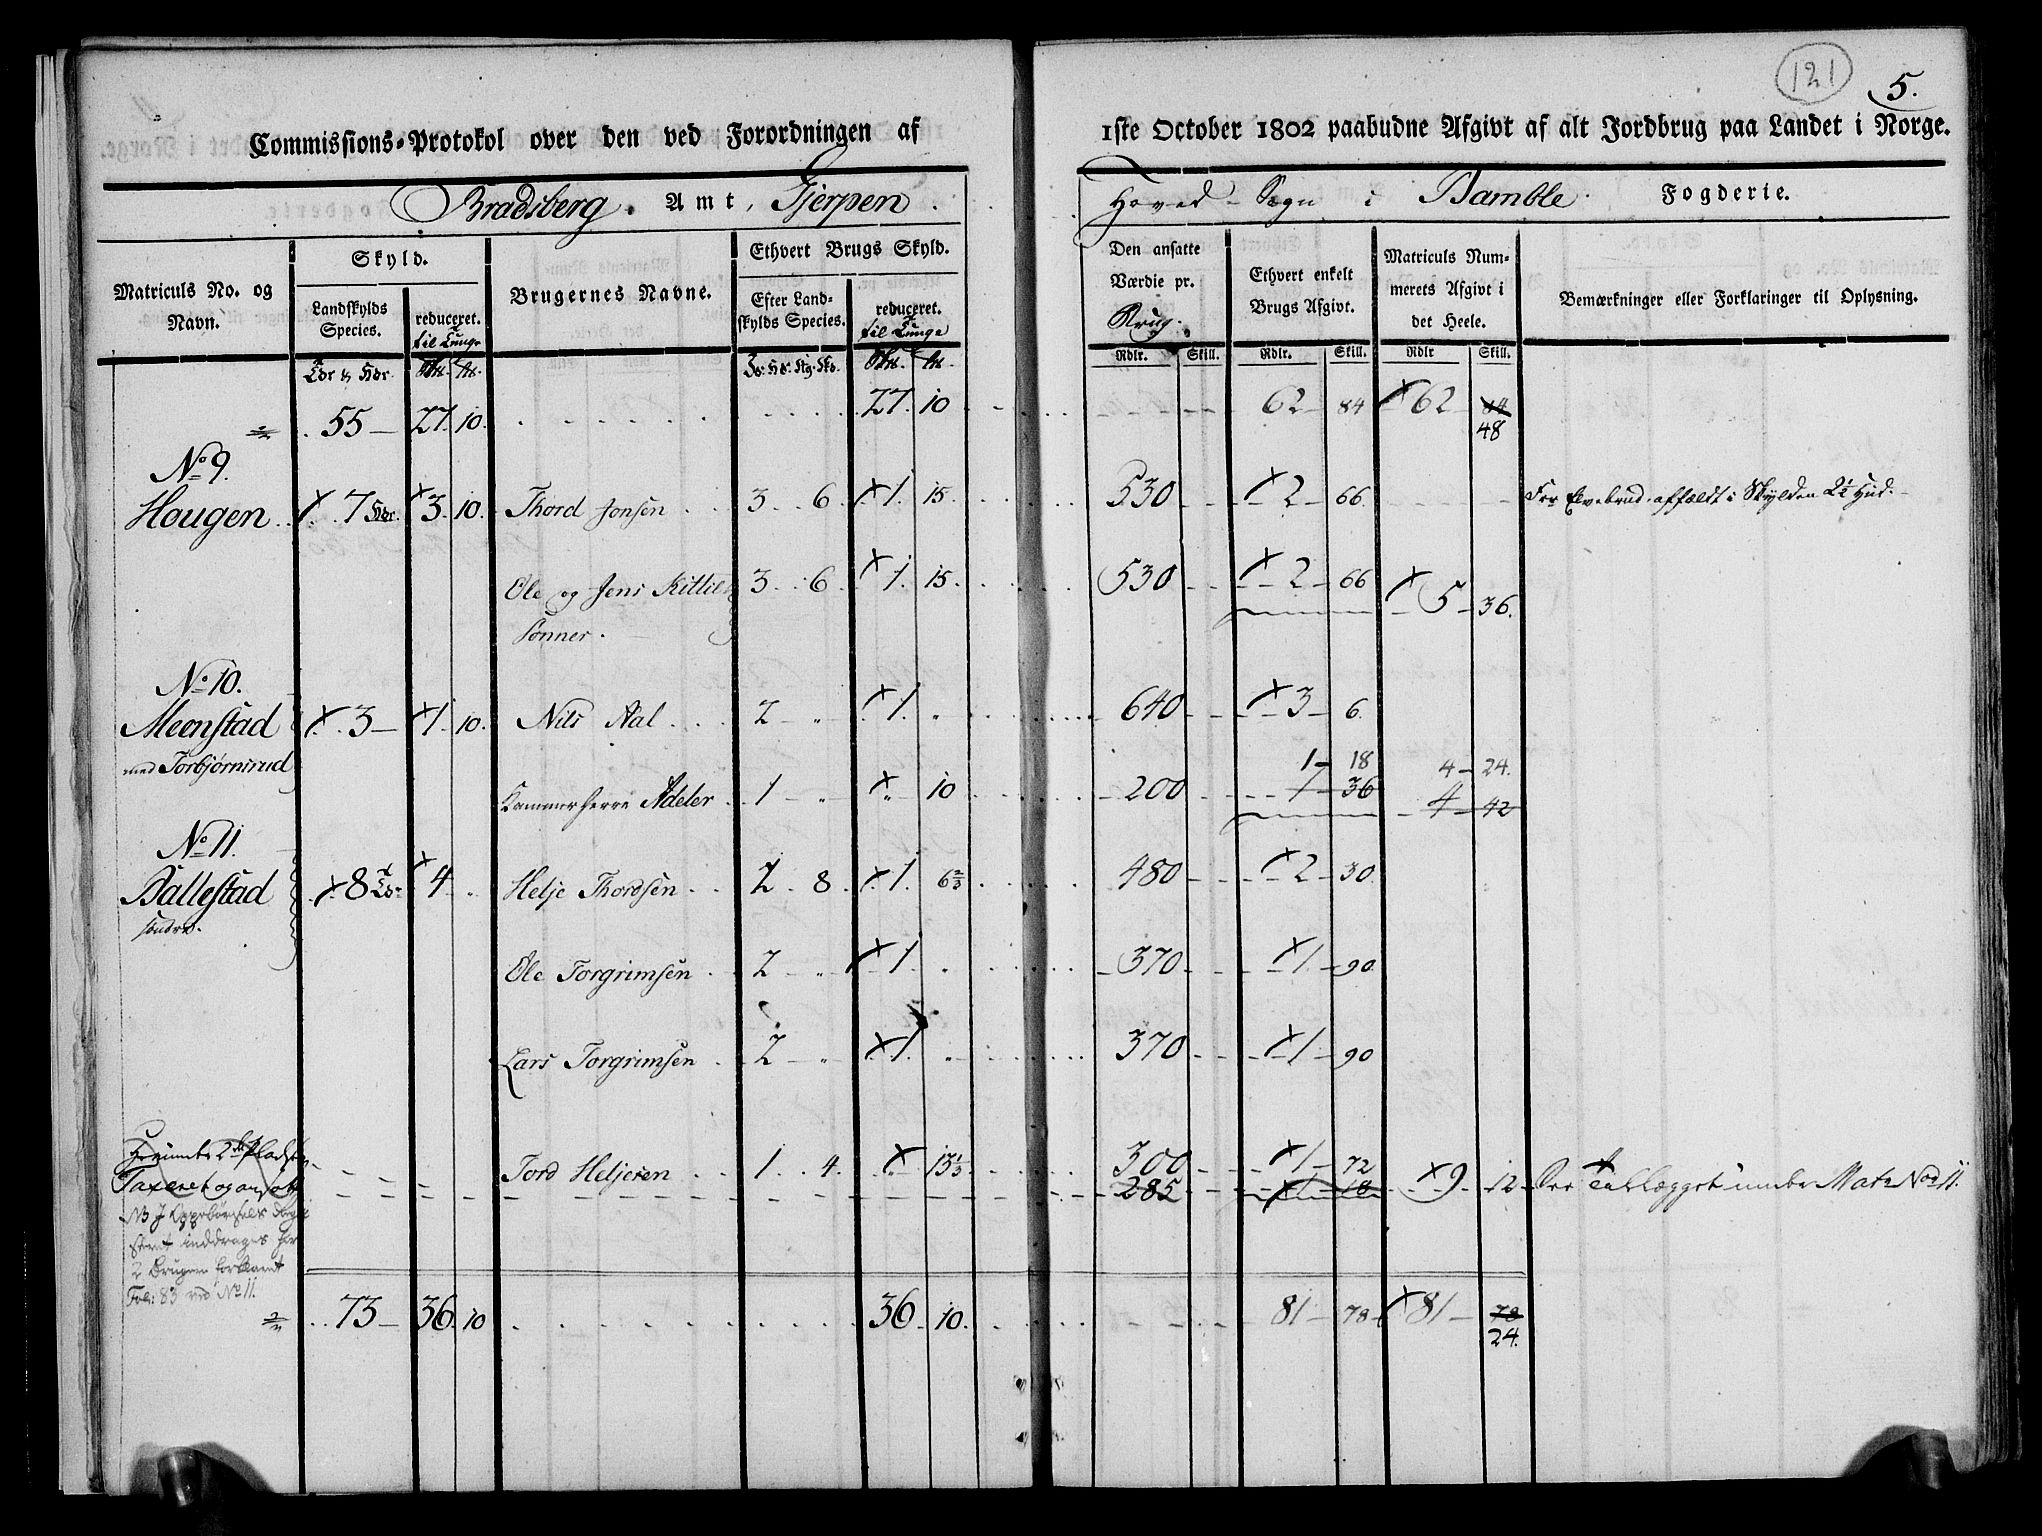 121
5.
Commissions-Protokol over den ved Forordningen af 1ste October 1802 paabudne Afgivt af alt Jordbrug paa Landet i Norge.
Bradsberg Amt, Gjerpen Hoved-Sogn i Bamble Fogderie.
Matriculs No. og Navn.
Skyld.
Landskylds Species.
reduceret. til Tunge
Brugernes Navne.
Ethvert Brugs Skyld.
Efter Landskylds Species.
reduceret. til Tunge
Den ansatte Værdie pr. Brug.
Ethvert enkelt Brugs Afgivt.
Matriculs Nummerets Afgivt i det Heele.
Bemærkninger eller Forklaringer til Oplysning.
Rdlr. Skill. Rdlr. Skill. Rdlr Skill.
55 27. 10. 27. 10 62 84 62 84
48
No 9.
Hougen 7 3. 10. Thord Jonsen 3 6 1. 15. 530 2 66 For Elvebrud affældt i Skylden 2½ Hud.
Ole og Jens Kittils 3 6 1. 15. 530 2 66 5 36.
Sønner.
No 10.
Meenstad 3 1. 10. Nils Aal 2 1. 640 3 6.
med Torbjørnsrud
1 18 4 24.
Kammerherre Adeler 1 10 200 1 36 4 42
No 11.
Ballestad 8 4 Helje Thordsen 2 8 1. 6⅔ 480 2 30.
søndre.
Ole Torgrimsen 2 1 370 1 90
Lars Torgrimsen 2 1 370 1 90
Herunder 2de Pladser
Taxeret og ansat
Tord Heljesen 1 4. 13⅓ 300 1 72 9 12 under Matr No 11.
285 1 18
inddrages her
2 Brugere forklaret
Fol: 83 ved No 11.
73 36. 10 36. 10. 81 78 81 78
24.